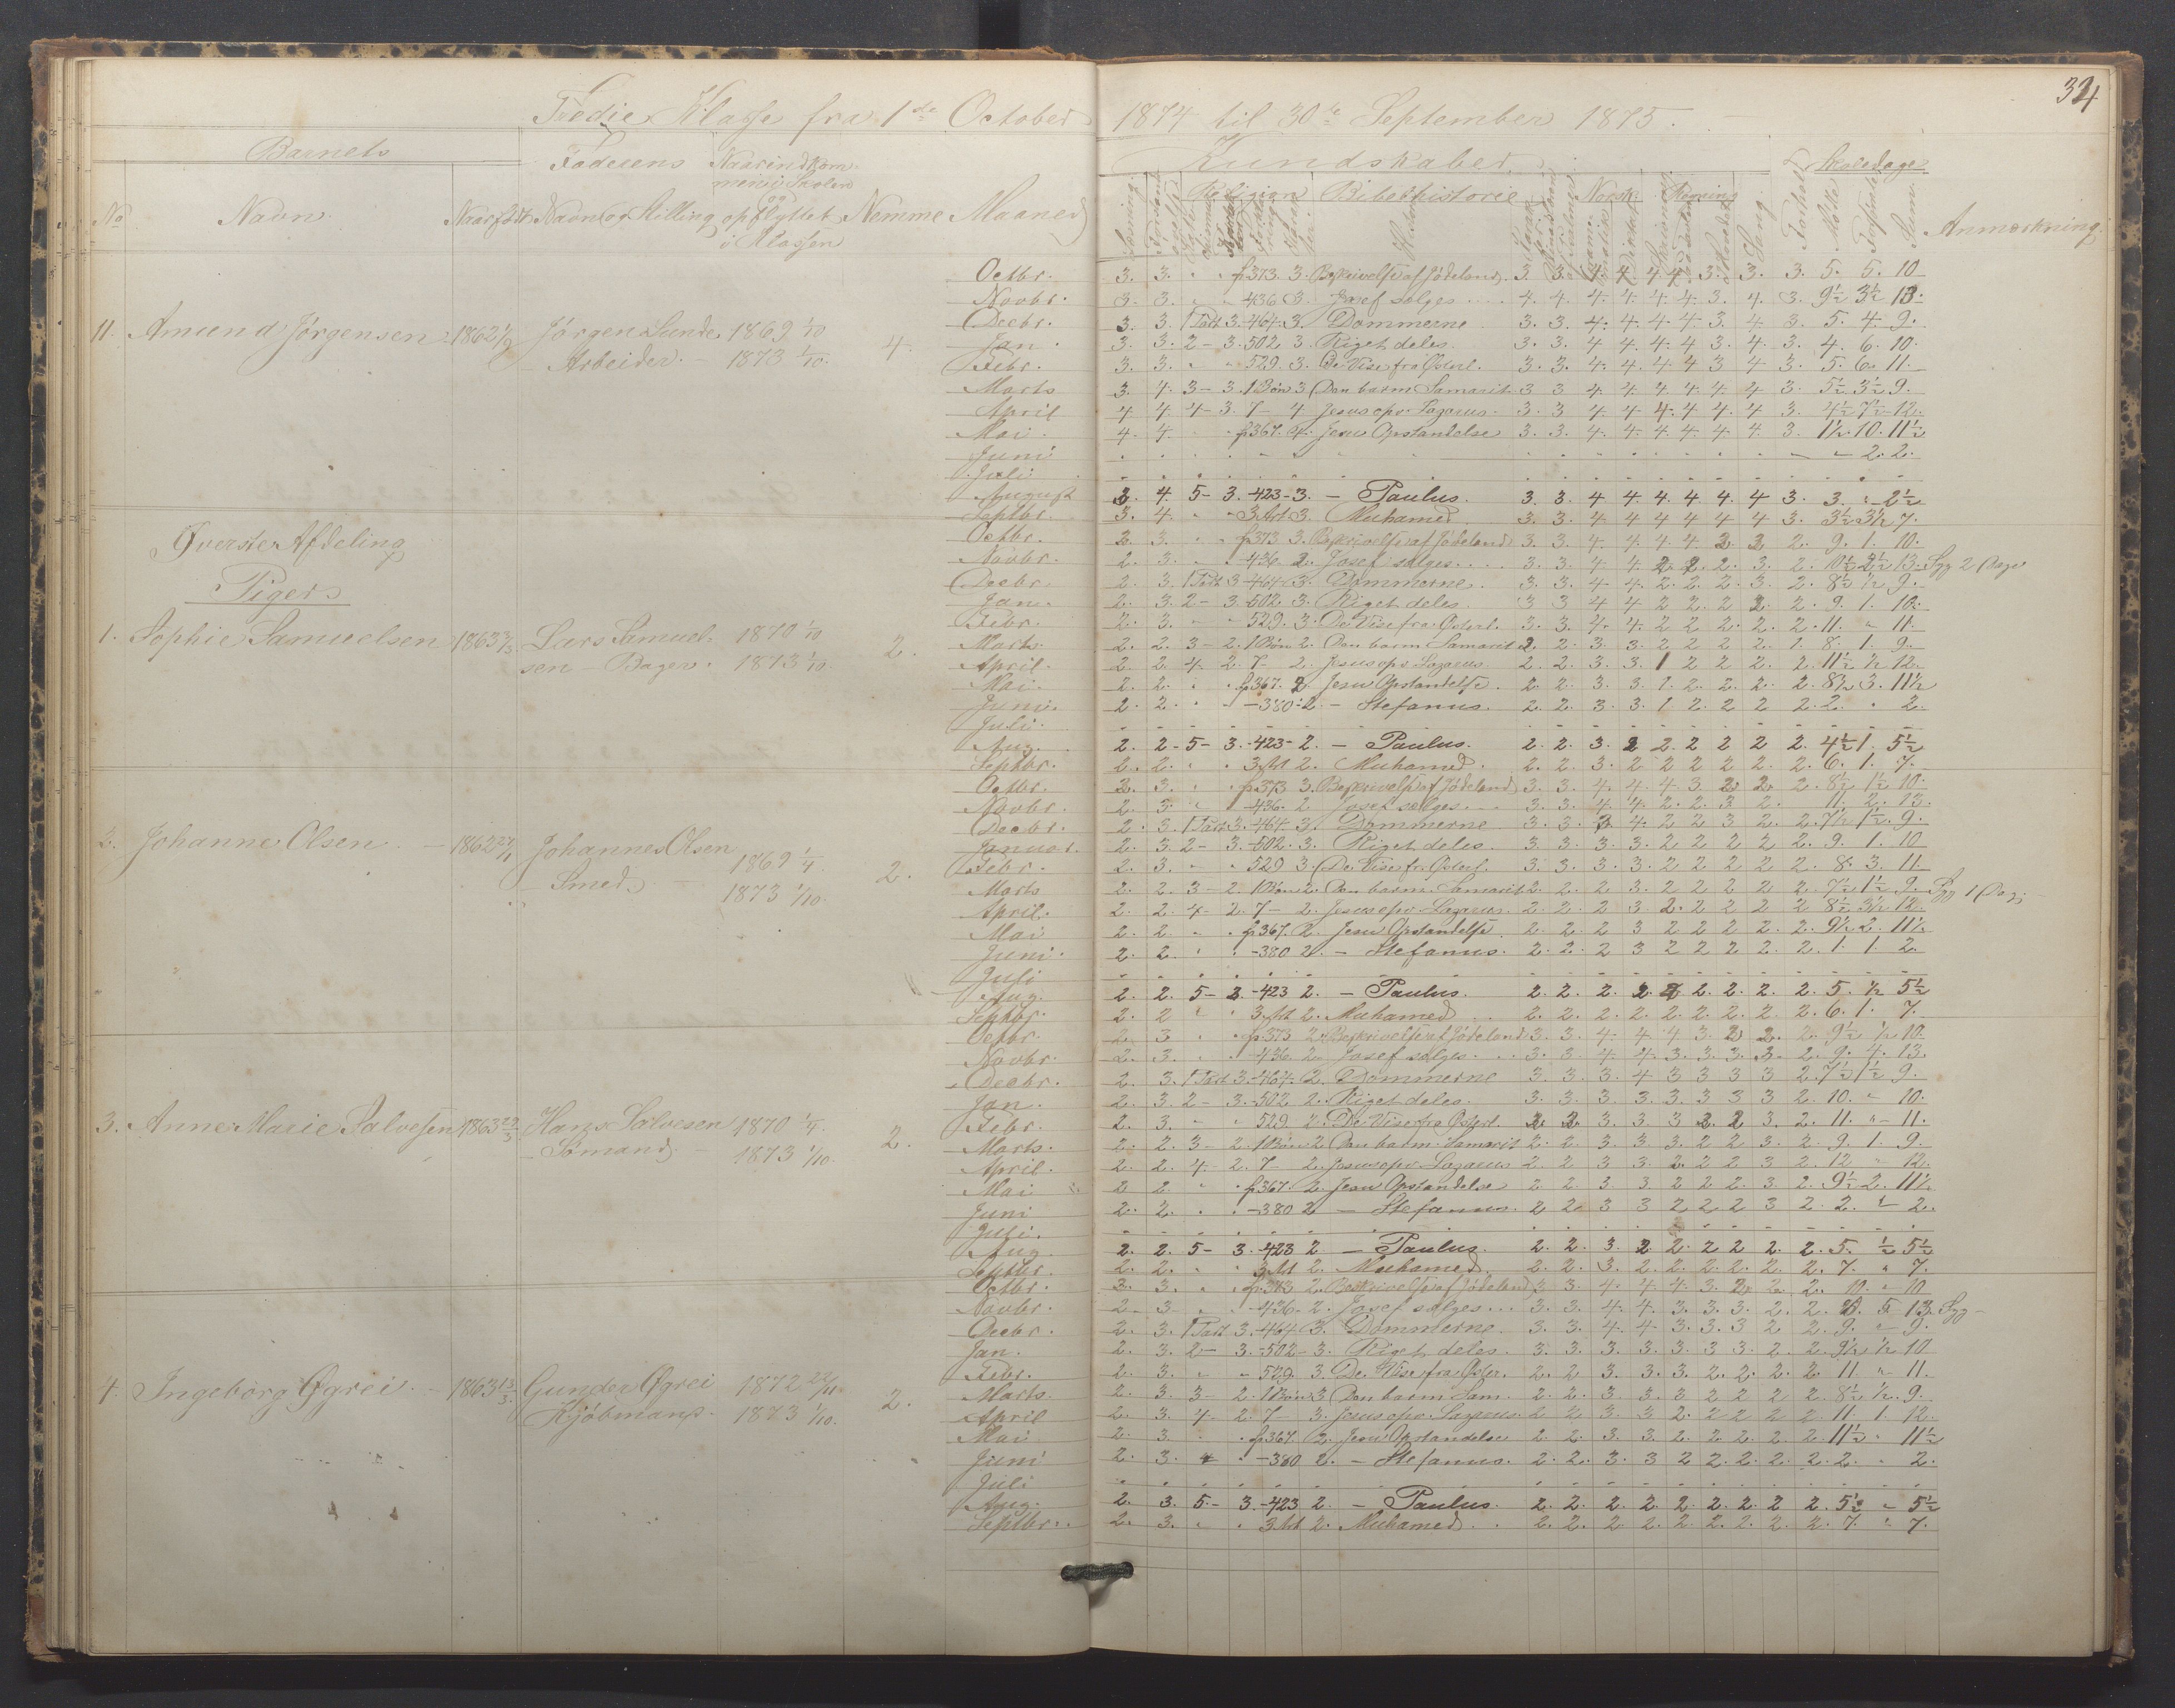 34
Tredie Klasse fra 1ste October 1874 til 30te September 1875.
Barnets Faderens Naar indkommen i Skolen og opflyttet i Klassen Kundskaber Skoledage
No Navn Naar født Navn og Stilling Nemme Maaned Læsning Religion Bibelhistorie Norsk Regning Sang Forhold Mødte Forsømte Sum Anmærkning
11. Amund Jørgensen 1862 Jørgen Lunde 1869 1/10
Arbeider. 1873 1/10. 4.
Octbr. 3. 3. " " p 373. 3. Beskrivelse af Jødeland. 3. 3. 4. 4 4. 4 3. 3. 3. 5. 5. 10
Novbr. 3. 3. " " 436 3. Josef sælges 4. 4. 4. 4. 4. 4. 3. 4. 3. 9½ 3½ 13.
Decbr. 3. 3. 1 Part 3. 464. 3. Dommerne 3. 3. 4. 4. 4. 4. 3. 4 3. 5. 4. 9.
Jan. 3. 3. 2 - 3. 502 3. Riget deles. 3. 3. 4 4. 4. 4 3. 4. 3. 4. 6. 10.
Febr. 3. 3. " " 529. 3. De Vise fra Østerl. 3. 3. 4. 4. 4. 4 3 4 3. 5. 6. 11.
Marts 3. 4. 3 - 3. 1 Bøn 3 Den barm. Samarit 3 3 4. 4. 4 4. 4. 4 3. 5½ 3½ 9.
April 4 4. 4 - 3. 7 - 4 Jesus opv. Lazarus. 3. 3 4. 4 4. 4. 4. 4 3. 4½ 7½ 12.
Mai. 4. 4. " " p 367. 4. Jesu Opstandelse 3. 3. 4. 4. 4. 4. 4. 4. 3. 1½ 10. 11½
Juni " 2. 2.
Juli
August 3. 4. 5 - 3. 423 - 3. - Paulus. 3. 3. 4 4. 4. 4. 4. 4 3. 3. " 2½
Septbr. 3. 4. " " 3 Art 3. Muhamed 3. 3. 4. 4 4 4 4 4 3. 3½ 3½ 7.
Øverste Afdeling
Piger
1. Sophie Samuelsen 1863 Lars Samuelsen - Bager. 1870 1/10
1873 1/10. 2.
Octbr. 2. 3. " " p 373 3. Beskrivelse af Jødeland 3. 3. 4. 4. 4. 4. 2. 2 2. 9. 1. 10.
Novbr. 2. 3. " " 436 2. Josef sælges 3. 3. 4 4 2. 2. 2. 3. 2. 10½ 2½ 13. Syg 2 Dage
Decbr. 2. 3. 1 Part 3 464 3. Dommerne. 3. 3. 4 4. 2. 2. 2. 3. 2. 8½ ½ 9.
Jan. 2. 3. 2 - 3. 502. 3. Riget deles. 3 3 4 4 2 2. 2 2. 2. 9. 1. 10.
Febr. 2. 3. " " 529. 3. De Vise fra Østerl. 3. 3. 4. 4. 2 2 2. 2. 2. 11. " 11.
Marts 2. 2. 3 - 2. 1 Bøn 2. Den barm Samarit 2. 2. 3. 3. 2 2 2. 2. 1. 8. 1. 9.
April. 2. 2. 4. - 2. 7 - 2. Jesus opv. Lazarus 2. 2. 3. 3. 1 2 2. 2. 2. 11½ ½ 12.
Mai. 2. 2. " " p 367. 2. Jesu Opstandelse. 2. 2. 3. 3. 1. 2. 2. 2. 2. 8½ 3. 11½
Juni. 2. 2. " " - 380. 2. - Stefanus. 2. 2. 3. 3. 1 2. 2 2 2. 2. " 2.
Juli.
Aug. 2. 2. 5 - 3. 423 - 2. - Paulus. 2. 2. 3. 2 2. 2 2 2 2. 4½ 1. 5½
Septbr. 2. 2. " " 3 Art 2. Muhamed. 2. 2. 3. 2 2 2 2. 2. 2. 6. 1. 7.
3. Johanne Olsen 1862 Johannes Olsen
Smed 1869 1/4
1873 1/10. 2.
Octbr. 2. 3. " " p 373 3. Beskrivelse af Jødeland 3. 3. 4. 4. 4. 3 2. 2. 2. 8½ 1½ 10.
Novbr. 2. 3. " 436. 2 Josef sælges 3. 3. 4. 4. 2. 2. 3 2. 11. 2. 13.
Decbr. 2. 3. 1 Part 3. 464. 3. Dommerne 3. 3. 3. 4. 2 2 3 2. 2. 7½ 1½ 9.
Januar. 2. 3 2 - 3. 502. 3. Riget deles. 3. 3. 3. 3. 2 2 2 2 2. 9. 1. 10
Febr. 2. 3. " " 529 3. De Vise fr. Østerl. 3. 3. 3. 3. 2 2 2 2 2. 8. 3. 11.
Marts 2. 2. 3 - 2. 1 Bøn 2. Den barm. Samarit 2. 2. 2 3. 2 2 2 2 2. 7½ 1½ 9. Syg 1 Dag.
April. 2. 2. 4. - 2. 7 - 2. Jesus opv. Lazarus. 2. 2. 2 3 2. 2 2 2 2 8½ 3½ 12.
Mai 2. 2. " " p 367. 2. Jesu Opstandelse. 2. 2. 2 3 2 2 2 2. 2. 9½ 2. 11½
Juni. 2. 2. " " - 380 2. - Stefanus. 2. 2. 2 3 2 2 2 2. 2. 1. 1. 2.
Juli
Aug. 2. 2. 5 - 3. 423 2. - Paulus. 2. 2. 2. 2. 2. 2. 2. 2. 2. 5. ½ 5½
Septbr. 2. 2 " " 3 Art 2. Muhamed 2. 2. 2. 2. 2. 2. 2. 2. 2. 6. 1. 7.
3. Anne Marie Salvesen 1863 Hans Salvesen 1870 1/4.
Sømand 1873 1/10. 2.
Octbr. 2 3 " " p. 373 2. Beskrivelse af Jødeland 3. 3. 4. 4 4 3. 2. 2. 2. 9½ ½ 10.
Novbr. 2. 3. " " 436. 2 Josef sælges. 3. 3. 4 4. 3. 3. 3. 3. 2. 9. 4. 13.
Decbr. 2. 3. 1 Part 3. 464. 2. Dommerne 3. 3. 3. 4 3 3 3 3 2. 7½ 1½ 9.
Jan. 2. 3. 2 - 3. 502 2. Riget deles. 3. 3. 3. 3. 3. 3 3 3 2. 10. " 10.
Febr. 2. 3. " " 529 2. De Vise fra Østerl. 2. 2. 3. 3. 3 2. 2 3. 2. 11. " 11.
Marts. 2. 2. 3 - 2. 1 Bøn 2 Den barm. Samarit 2. 2. 3. 3. 3. 2 2 3. 2. 9. 1. 9.
April. 2. 2. 4 - 2. 7 2. Jesus opv. Lazarus 2. 2 3 3. 2. 2 2 3 2. 12 " 12.
Mai 2 2. " " p 367. 2. Jesu Opstandelse 2. 2 3. 3. 2 2 2. 3. 2. 9½ 2. 11½
Juni 2. 2. " " - 380 2 - Stefanus. 2 2 3 3 2 2 2 3 2. 2. " 2.
Juli.
Aug. 2. 2. 5 - 3. 423 2 - Paulus. 2. 2. 3. 2. 2. 2 2 2. 2. 5. ½ 5½
Septbr. 2. 2. " " 3 Art 2. Muhamed. 2. 2. 3. 2. 2. 2. 2. 2. 2. 7. " 7.
4. Ingeborg Øgrei. 1863 Gunder Øgrei 1872
Kjøbmand. 1873 1/10. 2.
Octbr. 2. 3. " " p 373 2. Beskrivelse af Jødeland 3 3. 4. 4. 4. 3. 2. 2. 2. 10. " 10
Novbr. 2. 3 " " 436 - 2. Josef sælges 3. 3. 4. 4. 3. 3. 3. 2. 2. 8. 5 13. Syg
Decbr. 2. 3. 1 Part 3. 464 3. Dommerne. 3. 3. 4. 4. 3. 3. 3 2 2. 9. " 9.
Jan. 2. 3. 2 - 3. 502 - 3. Riget deles. 3. 3. 3. 3. 3. 3 3. 2. 2. 9½ ½ 10
Febr. 2. 3. " " 529 3. De Vise fra Øster. 2. 2 3. 3. 3. 2. 2. 2. 2. 11 " 11.
Marts. 2. 3. 3 - 2. 1 Bøn 3 Den barm Sam. 2. 2. 3. 3. 2 2 2 2 2. 8½ ½ 9.
April 2. 3. 4. 2. 7 - 3. Jesus opv. Lazarus. 2 2 3. 3 2. 2 2 2 2. 11 1. 12.
Mai 2. 3. " " p 367. 2. Jesu Opstandelse 2. 2. 3. 3 2. 2. 2. 2 2. 11½ " 11½
Juni 2. 3. " " - 380 2. - Stefanus. 2. 2. 3. 3 2 2. 2. 2. 2. 2. " 2.
Juli
Aug. 2. 3. 5 - 3. 423 2. - Paulus. 2. 2. 2. 2. 2. 2. 2. 2 2. 5½ " 5½
Septbr. 2. 3. " " 3 Art 2. Muhamed. 2. 2. 2 2. 2. 2. 2. 2. 2. 7. " 7.